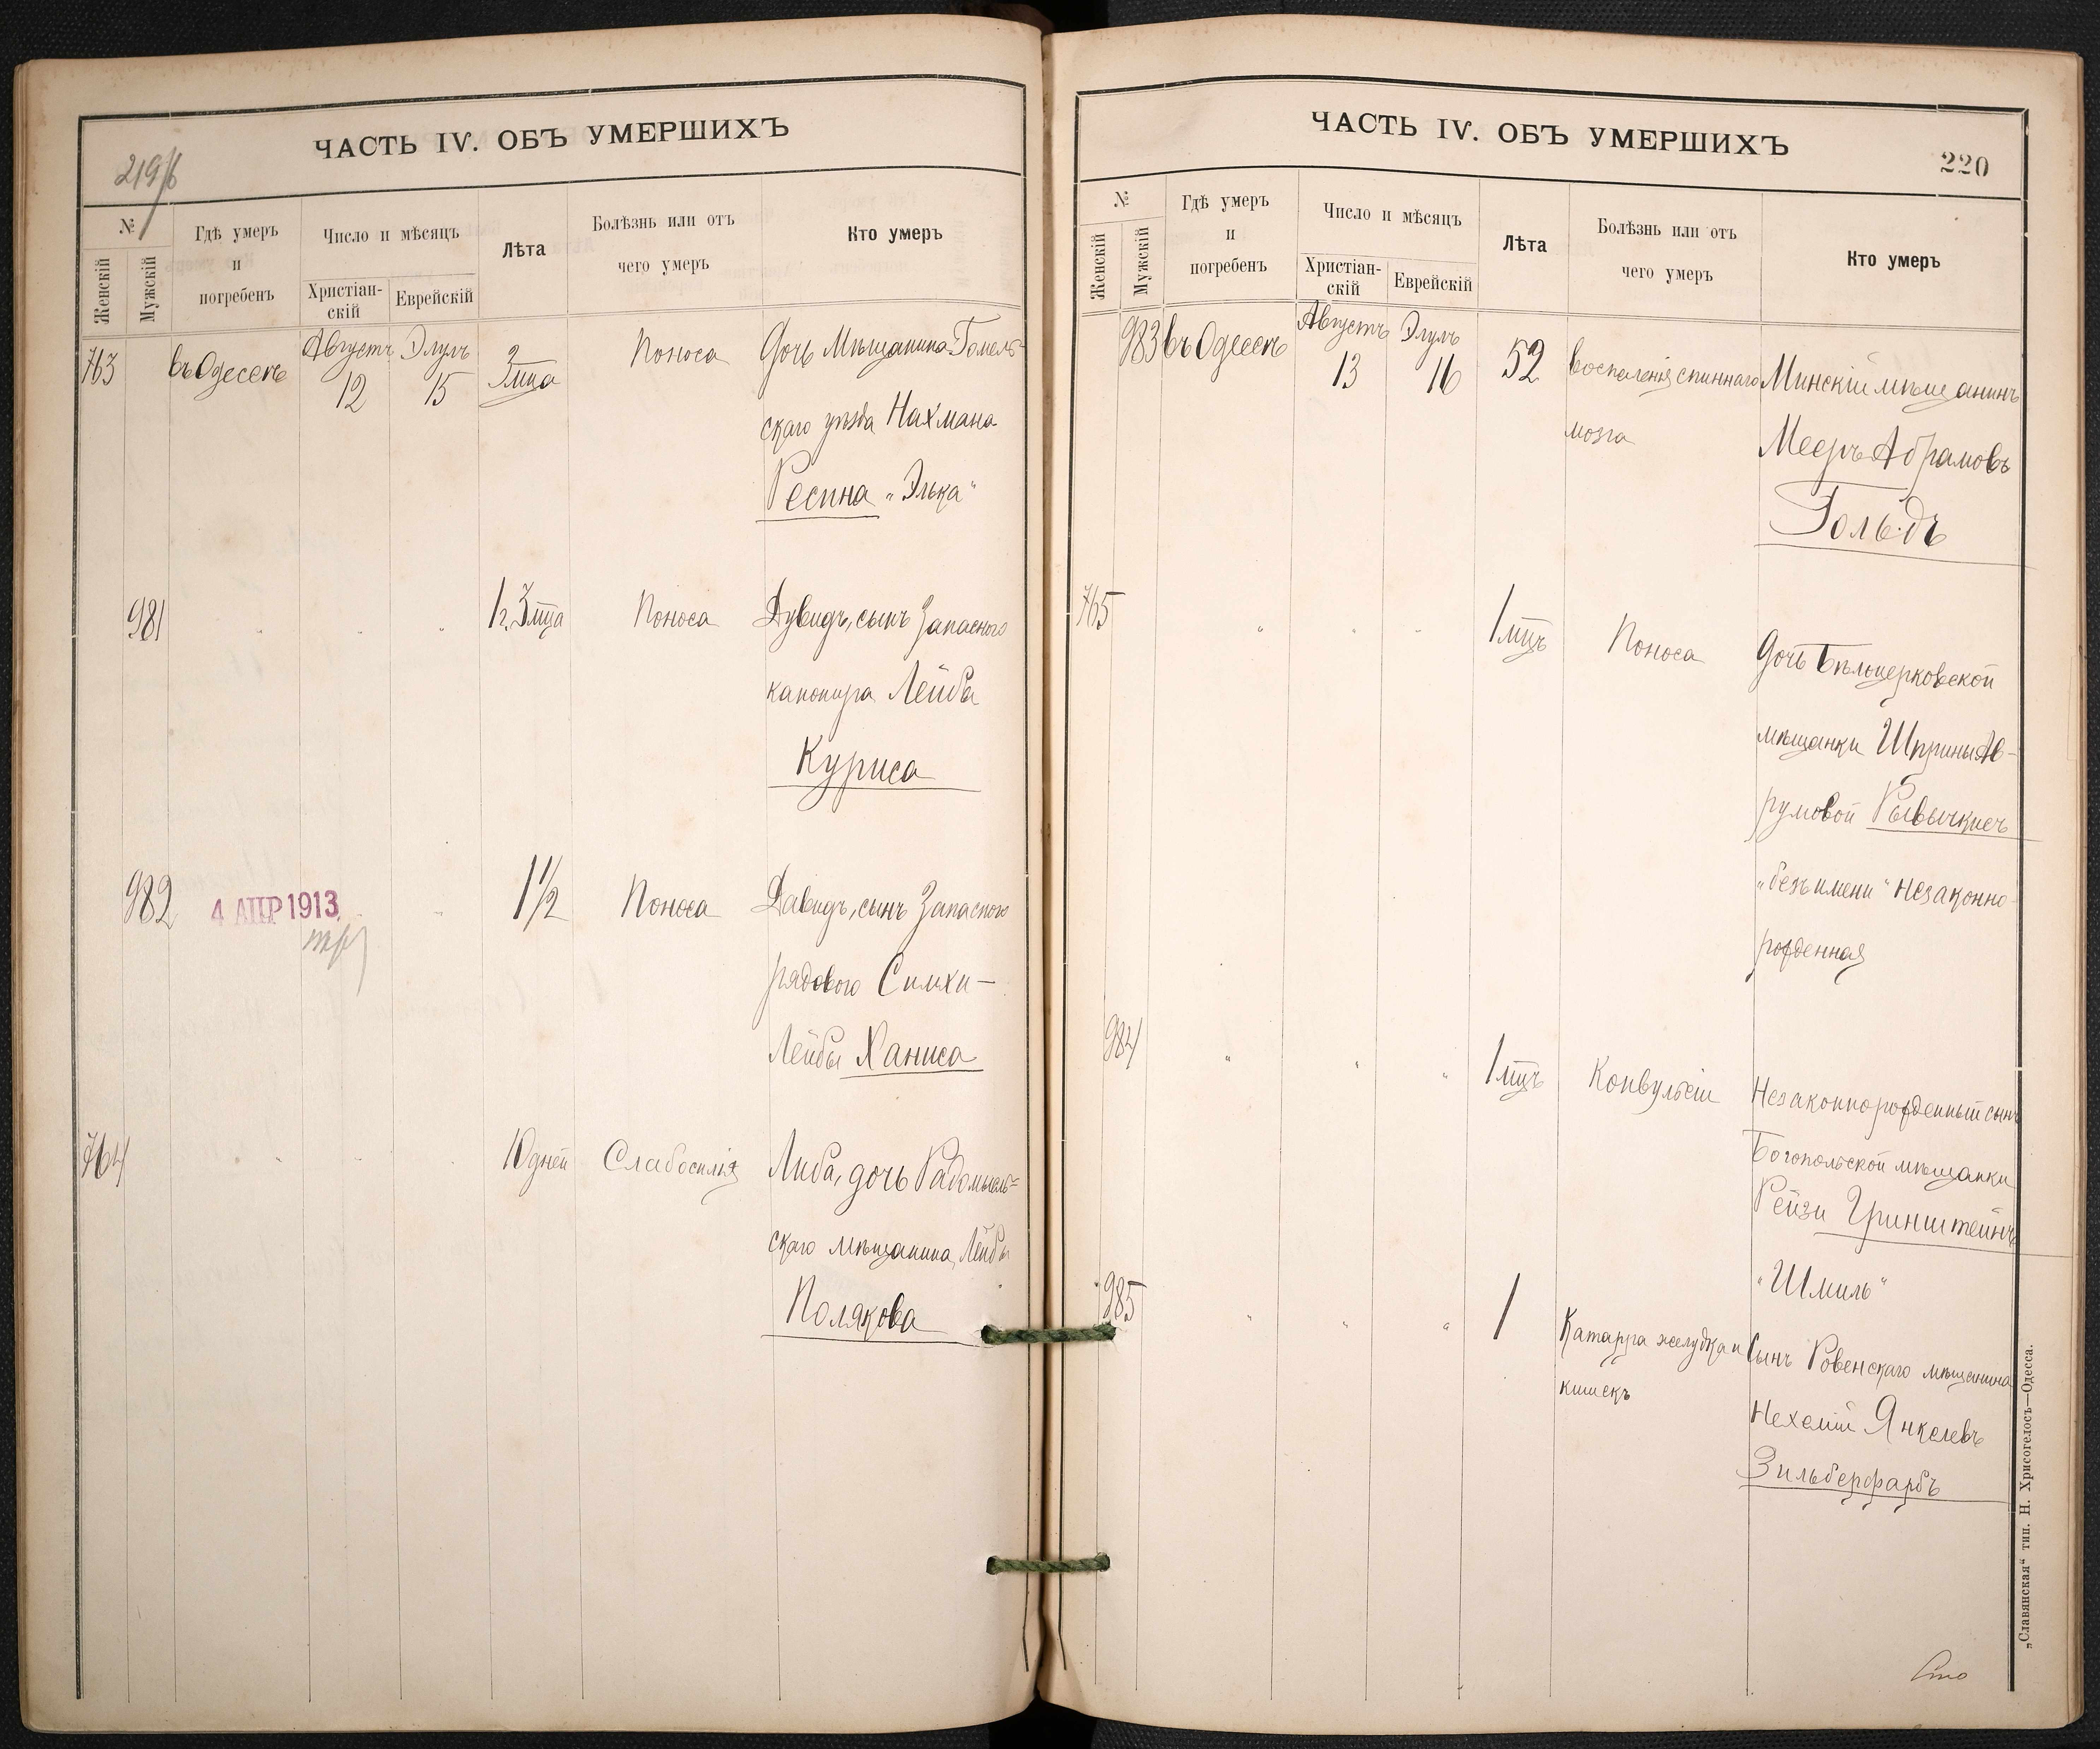 ЧАСТЬ IV. ОБЪ УМЕРШИХЪ
219/б
№
Женскій
Мужскій
Гдѣ умеръ
и
погребенъ
Число и мѣсяцъ
Христіан-
скій
Еврейскій
Лѣта
Болѣзнь или отъ
чего умеръ
Кто умеръ
763
въ Одессѣ
Августъ
12
Элулъ
15
Поноса
Дочь Мѣщанина Гомель-
скаго уѣзда Нахмана
Ресина „Элька"
981
" " "
1 г. 3 мца
Поноса
Дувидъ, сынъ Запасного
канонира Лейбы
Куриса
982
4 АПР 1913
"
1 1/2
Поноса
Давидъ, сынъ Запасного
рядового Симхи-
Лейбы Ханиса
764
" " "
10 дней
Слабосилія
Либа, дочь Радомысль-
скаго мѣщанина Лейбы
Полякова
ЧАСТЬ IV. ОБЪ УМЕРШИХЪ
220
№
Женскій
Мужскій
Гдѣ умеръ
и
погребенъ
Число и мѣсяцъ
Христіан-
скій
Еврейскій
Лѣта
Болѣзнь или отъ
чего умеръ
Кто умеръ
983
въ Одессѣ
Августъ
13
Элулъ
16
52
Воспаленія спиннаго
мозга
Минскій мѣщанинъ
Мееръ Абрамовъ
Гольдъ
765
" " "
1 мцъ
Поноса
Дочь Бѣлоцерковской
мѣщанки Шприны Ав-
румовой
„безъ имени" незаконно-
рожденная
984
" " "
1 мцъ
Конвульсіи
Незаконнорожденный сынъ
Богопольской мѣщанки
Рейзи Гринштейнъ
"Шмиль"
985
" " "
1
Катарра желудка и
кишекъ
Сынъ Ровенскаго мѣщанина
Нехемій Янкелевъ
Зильберфарбъ
„Славянская" тип. Н. Хрисогелосъ—Одесса.